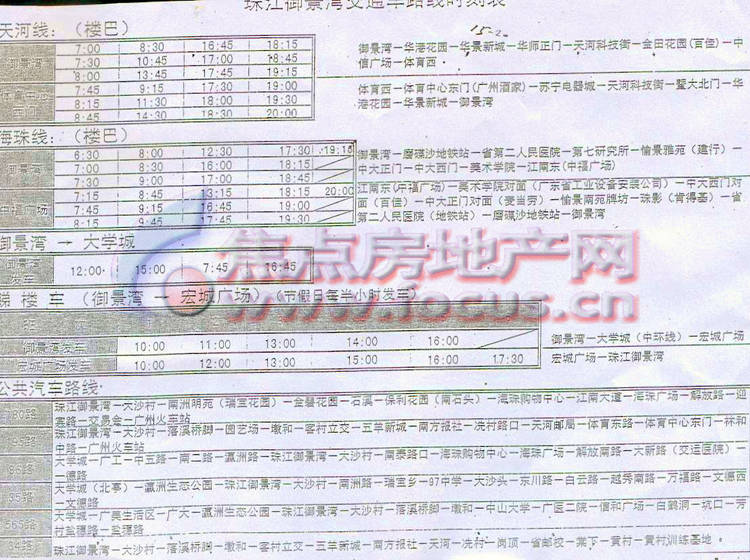 珠江御景湾交通车路线时刻表
天河线：(楼巴)
御景湾 7:00 8:30 16:45 18:15
7:30 10:45 17:00 18:45
8:00 13:45 17:45 19:15
御景湾—华港花园—华景新城—华师正门—天河科技街—金田花园(百佳)—中
信广场—体育西
体育中心 7:45 9:15 17:30 19:00
8:15 11:30 18:00 19:30
8:45 14:30 18:30 20:00
体育西—体育中心东门(广州酒家)—苏宁电器城—天河科技街—暨大北门—华
港花园—华景新城—御景湾
海珠线：(楼巴)
御景湾 6:30 8:00 12:30 17:30 19:10
7:00 8:30 16:00 18:15
7:30 9:00 17:00 18:45
御景湾—磨碟沙地铁站—省第二人民医院—第七研究所—愉景雅苑（建行）—
中大正门—中大西门—美术学院—江南东(中福广场)
中福广场 7:15 8:45 13:15 18:15 20:00
7:45 9:15 16:45 19:00
8:15 9:45 17:45 19:30
江南东(中福广场)—美术学院对面（广东省工业设备安装公司）—中大西门对
面（百佳）—中大正门对面（麦当劳）—愉景南苑牌坊—珠影（肯得基）—省
第二人民医院（地铁站）—磨碟沙地铁站—御景湾
御景湾 → 大学城
御景湾发车 12:00 15:00 7:45 16:45
睇楼车（御景湾 — 宏城广场）（节假日每半小时发车）
班
御景湾发车 10:00 11:00 13:00 14:00 16:00
御景湾—大学城（中环线）—宏城广场
宏城广场发车 10:00 12:00 13:00 15:00 16:00 17:30
宏城广场—珠江御景湾
焦点房地产网
www.focus.cn
公共汽车路线
珠江御景湾—大沙村—南洲明苑（瑞宝花园）—金碧花园—石溪—保利花园（南石头）—海珠购物中心—江南大道—海珠广场—解放路—迎
宾路—交易会—广州火车站
珠江御景湾—大沙村—落溪桥脚—园艺场—墩和—客村立交—五羊新城—南方报社—冼村路口—天河邮局—体育东路—体育中心东门—林和
中路—广州火车站
大学城—广工—中五路—南二路—瀛洲路—珠江御景湾—大沙村—南泰路口—海珠购物中心—海珠广场—解放南路—大新路（交运医院）—
一德路
大学城（北亭）—瀛洲生态公园—珠江御景湾—大沙村—南洲路—瑞宝乡—97中学—大沙头—东川路—白云路—越秀南路—万福路—文德西
—文德路
大学城—广美生活区—广大—瀛洲生态公园—珠江御景湾—大沙村—落溪桥脚—墩和—中山大学—广医二院—信和广场—白鹤洞—坑口—芳
村
珠江御景湾—大沙村—落溪桥脚—墩和—客村立交—五羊新城—南方报社—天河—冼村—岗顶—省邮校—棠下—黄村—黄村训练基地